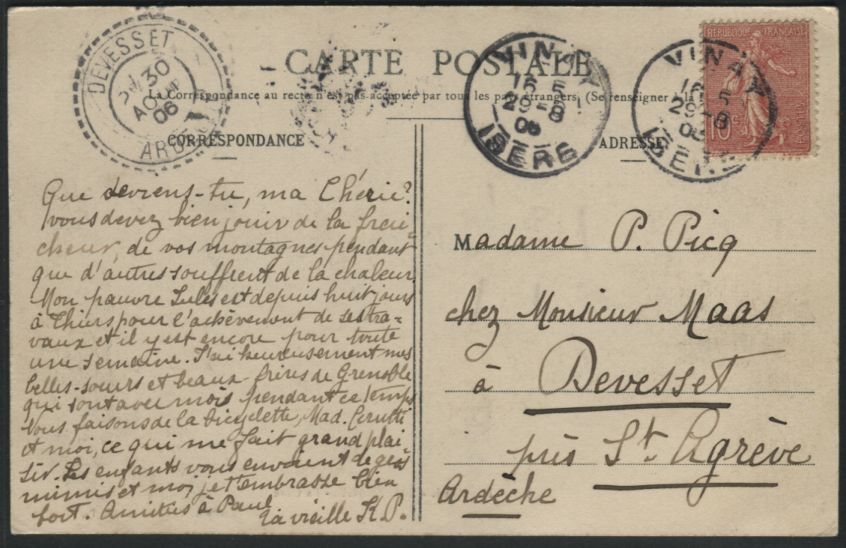 DEVESSET
30
AOUT
06
ARDECHE
CARTE POSTALE
La Correspondance au recto n'est pas acceptée par tous les pays étrangers (Se renseigner à la
VINAY
15 5
29-8
06
ISÈRE
VINAY
15 5
29-8
06
ISÈRE
RÉPUBLIQUE FRANÇAISE
10 c
CORRESPONDANCE
Que deviens-tu, ma Chérie?
vous devez bien jouir de la fraî-
cheur, de vos montagnes pendant
que d'autres souffrent de la chaleur.
Mon pauvre Jules est depuis huit jours
à Thiers pour l'achèvement de ses tra-
vaux et il y est encore pour toute
une semaine. J'ai heureusement mes
belles-soeurs et beaux-frères de Grenoble
qui sont avec moi pendant ce temps
Nous faisons de la bicyclette, Mad. Cerutti
et moi, ce qui me fait grand plai
sir. Les enfants vous envoient de gros
mimis et moi je t'embrasse bien
fort. Amitiés à Paul
Ta vieille K.P.
ADRESSE
Madame P. Picq
chez Monsieur Maas
à Devesset
près St. Agrève
Ardèche